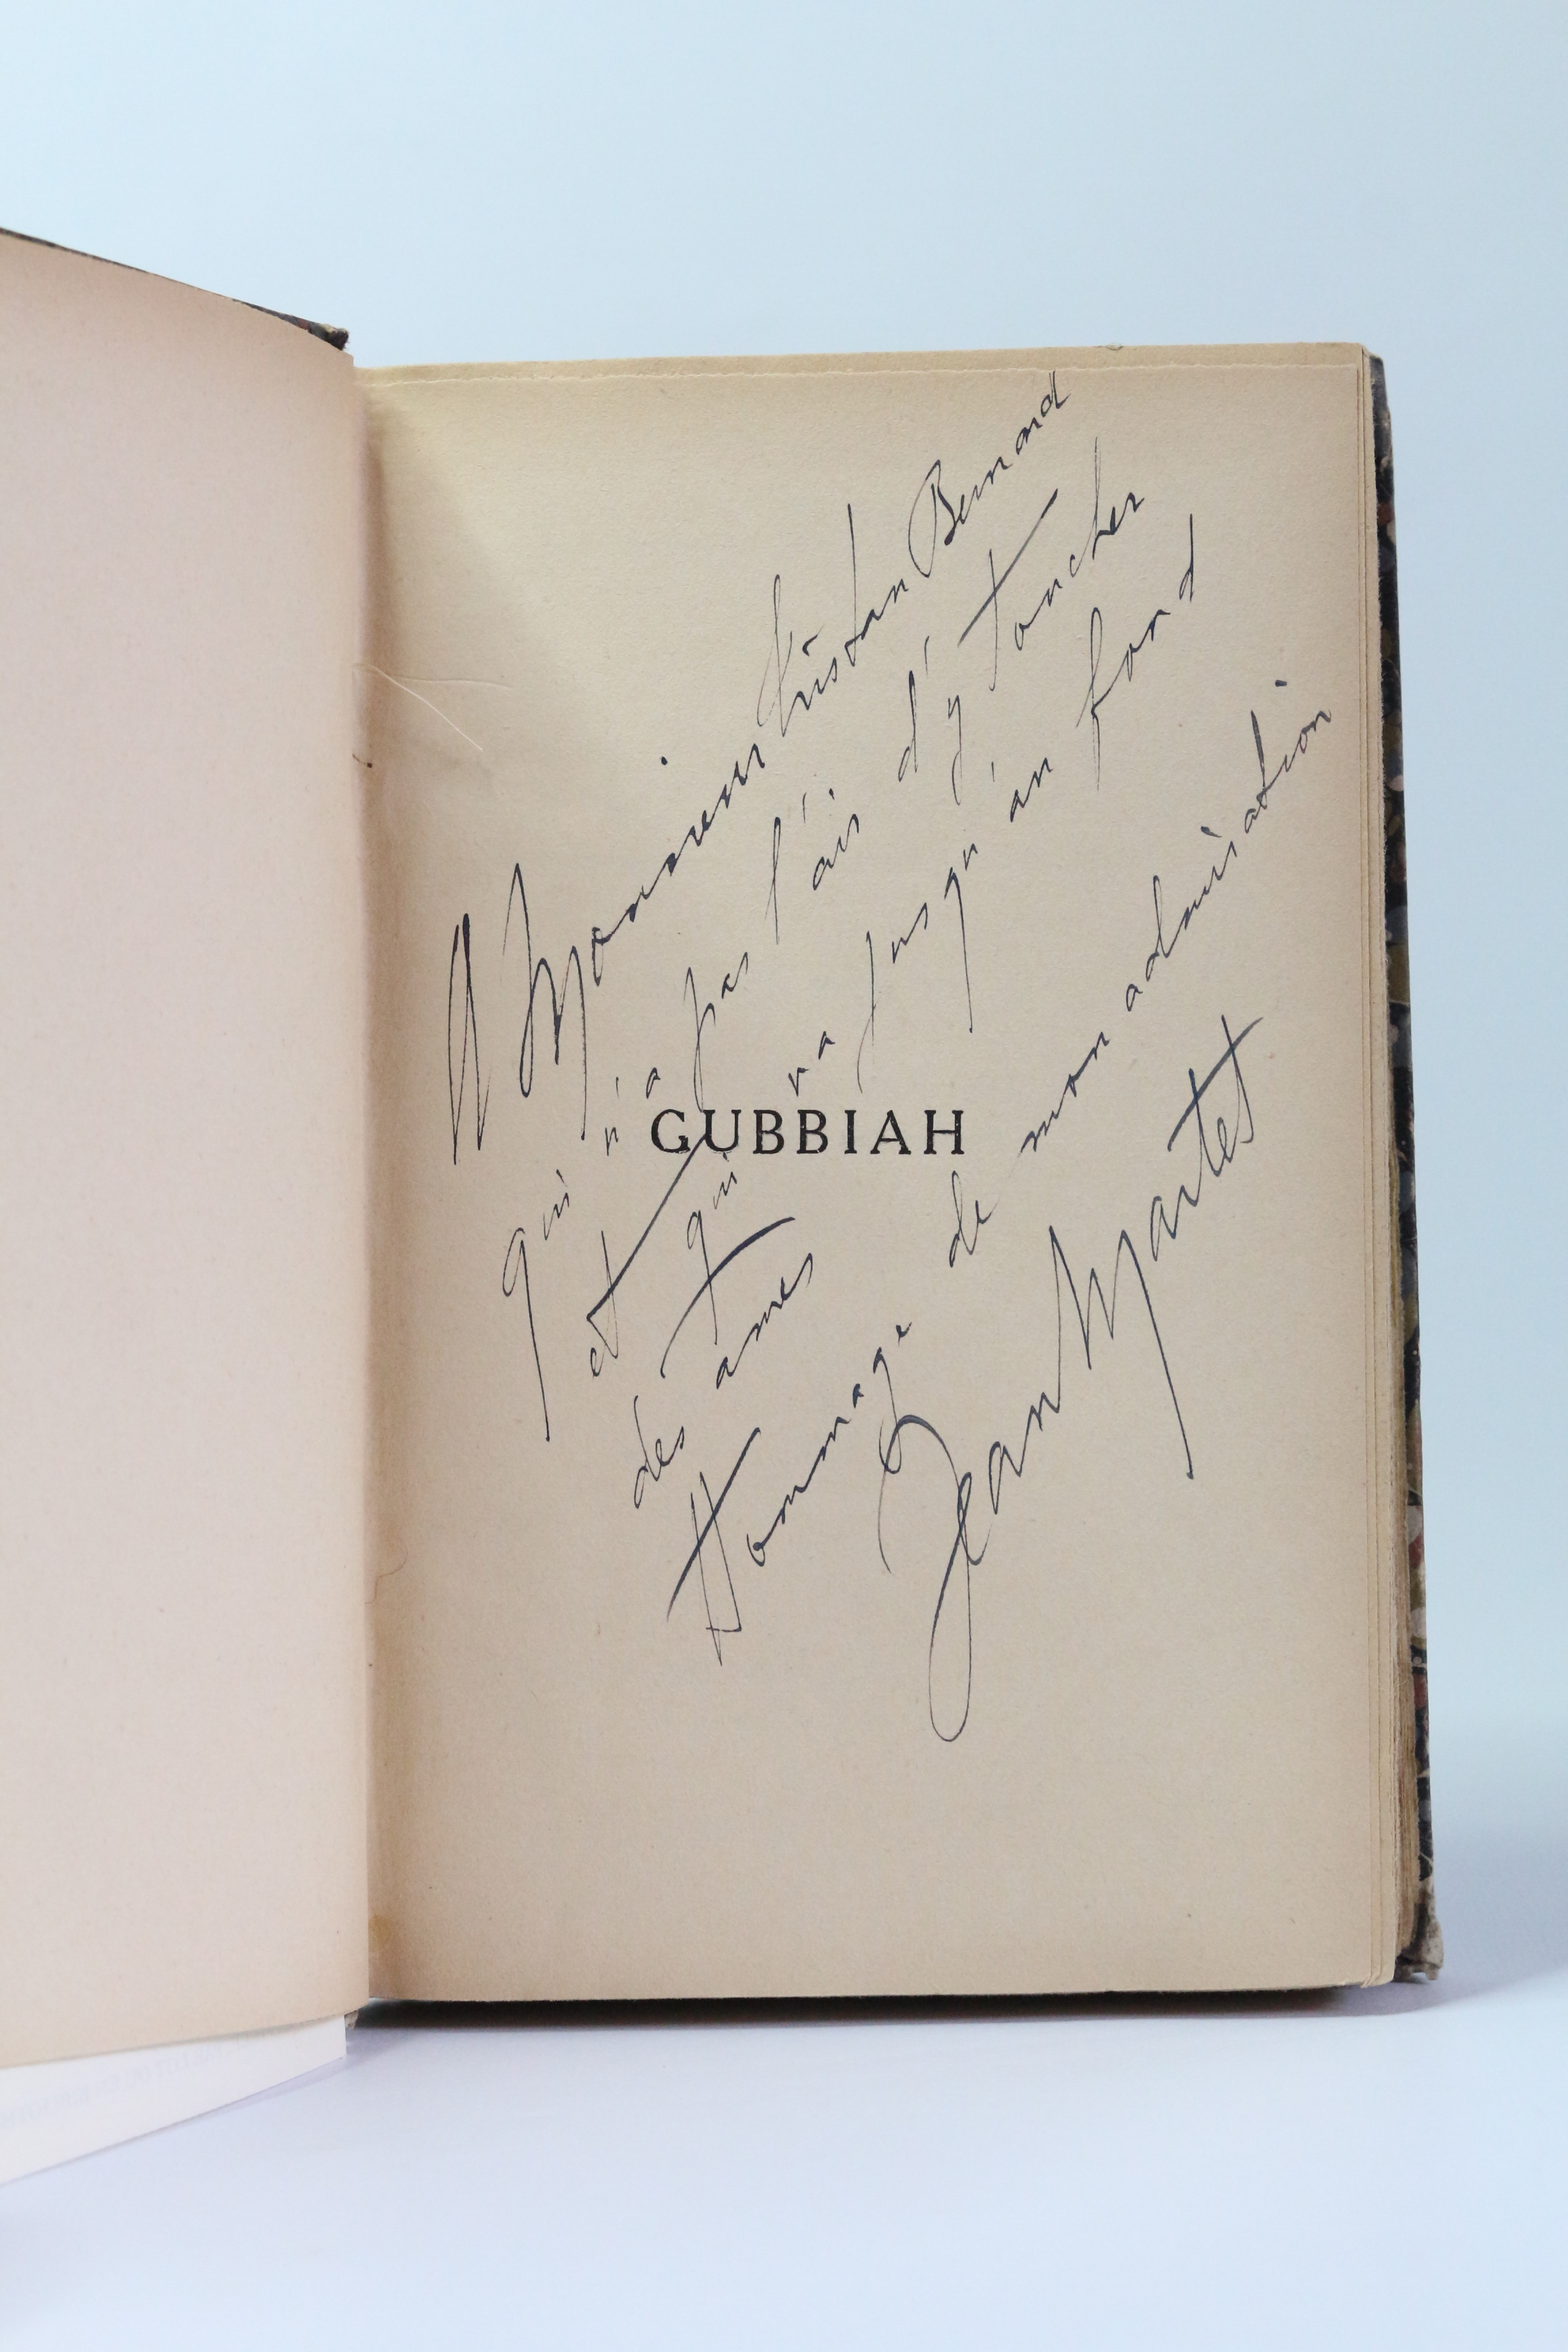 A Monsieur Tristan Bernard
qui n'a pas l'air d'y toucher
et qui va jusqu'au fond
des âmes
Hommage de mon admiration
Jean Martet
GUBBIAH